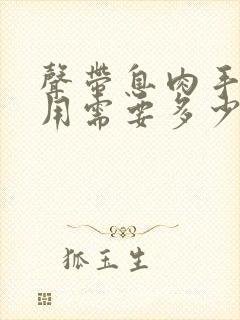 聲帶息肉手
用需要多少
狐玉生